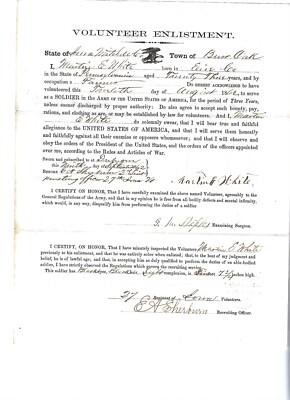 VOLUNTEER ENLISTMENT.
State of Iowa Town of Burr Oak
I, Martin E White born in Erie Co
in the State of Pennsylvania aged Twenty three years, and by
occupation a Farmer DO HEREBY ACKNOWLEDGE to have
volunteered this day of August 1862,
as a SOLDIER in the ARMY OF THE UNITED STATES OF AMERICA, for the period of Three Years,
unless sooner discharged by proper authority: Do also agree to accept such bounty, pay,
rations, and clothing as are, or may be established by law for volunteers. And I, Martin
E White do solemnly swear, that I will bear true and faithful
allegiance to the UNITED STATES OF AMERICA, and that I will serve them honestly
and faithfully against all their enemies or opposers whomsoever; and that I will observe and
obey the orders of the President of the United States, and the orders of the officers appointed
over me, according to the Rules and Articles of War.
Sworn and subscribed to at
this Ninth day of
BEFORE
mustering officer 27th Iowa
Martin E White
I CERTIFY, ON HONOR, That I have carefully examined the above named Volunteer, agreeably to the
General Regulations of the Army, and that in my opinion he is free from all bodily defects and mental infirmity,
which would, in any way, disqualify him from performing the duties of a soldier.
Examining Surgeon.
I CERTIFY, ON HONOR, That I have minutely inspected the Volunteer, Martin E White
previously to his enlistment, and that he was entirely sober when enlisted; that, to the best of my judgment and
belief, he is of lawful age; and that, in accepting him as duly qualified to perform the duties of an able-bodied
soldier, I have strictly observed the Regulations which govern the recruiting service.
This soldier has eyes, hair, complexion, is feet inches high.
27 Regiment of Iowa Volunteers.
Recruiting Officer.